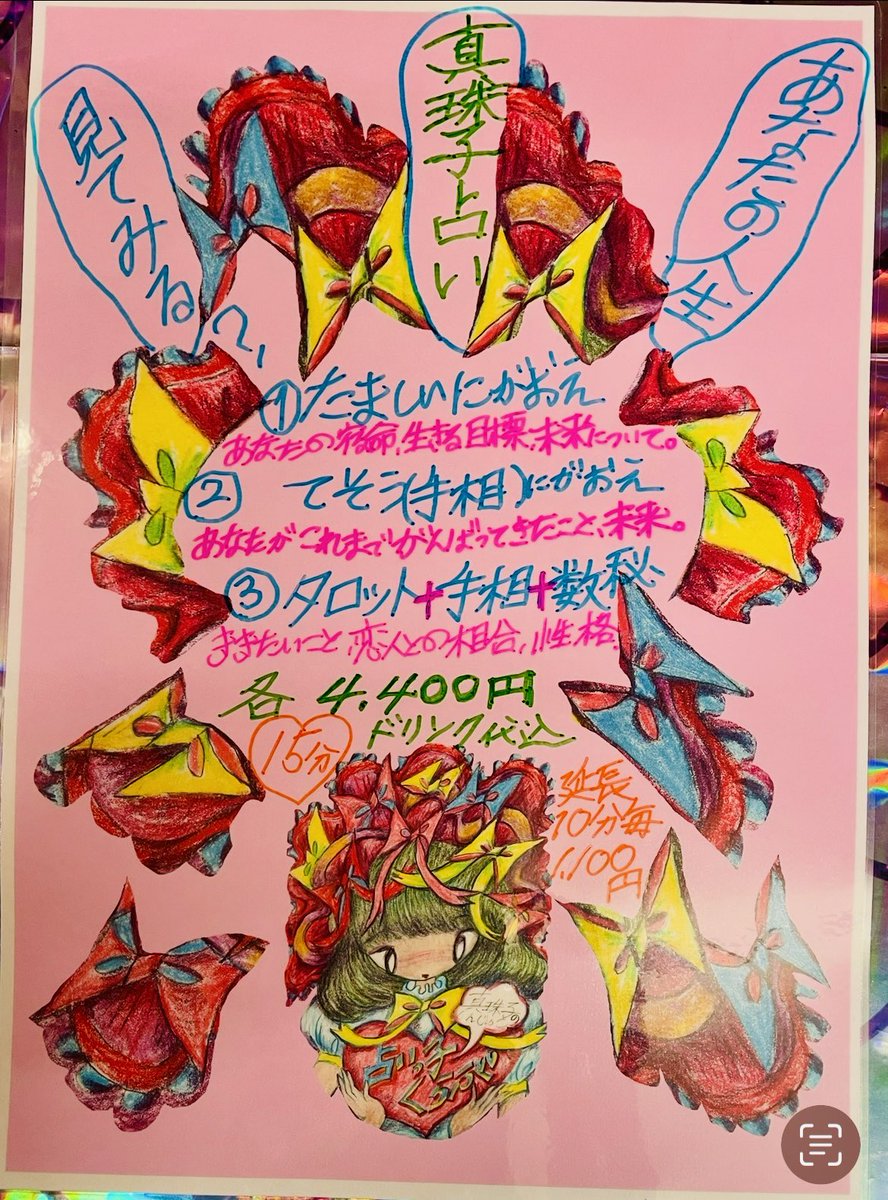 あなたの人生
真珠子占い
見てみる?
①たましいにがおえ
あなたの宿命、生きる目標、未来について。
② てそう(手相)にがおえ
あなたがこれまでがんばってきたこと、未来。
③タロット+手相+数秘
ききたいこと、恋人との相合、性格
各4,400円
15分
ドリンク代込
延長
10分毎
1,100
円
真珠子
占いの手